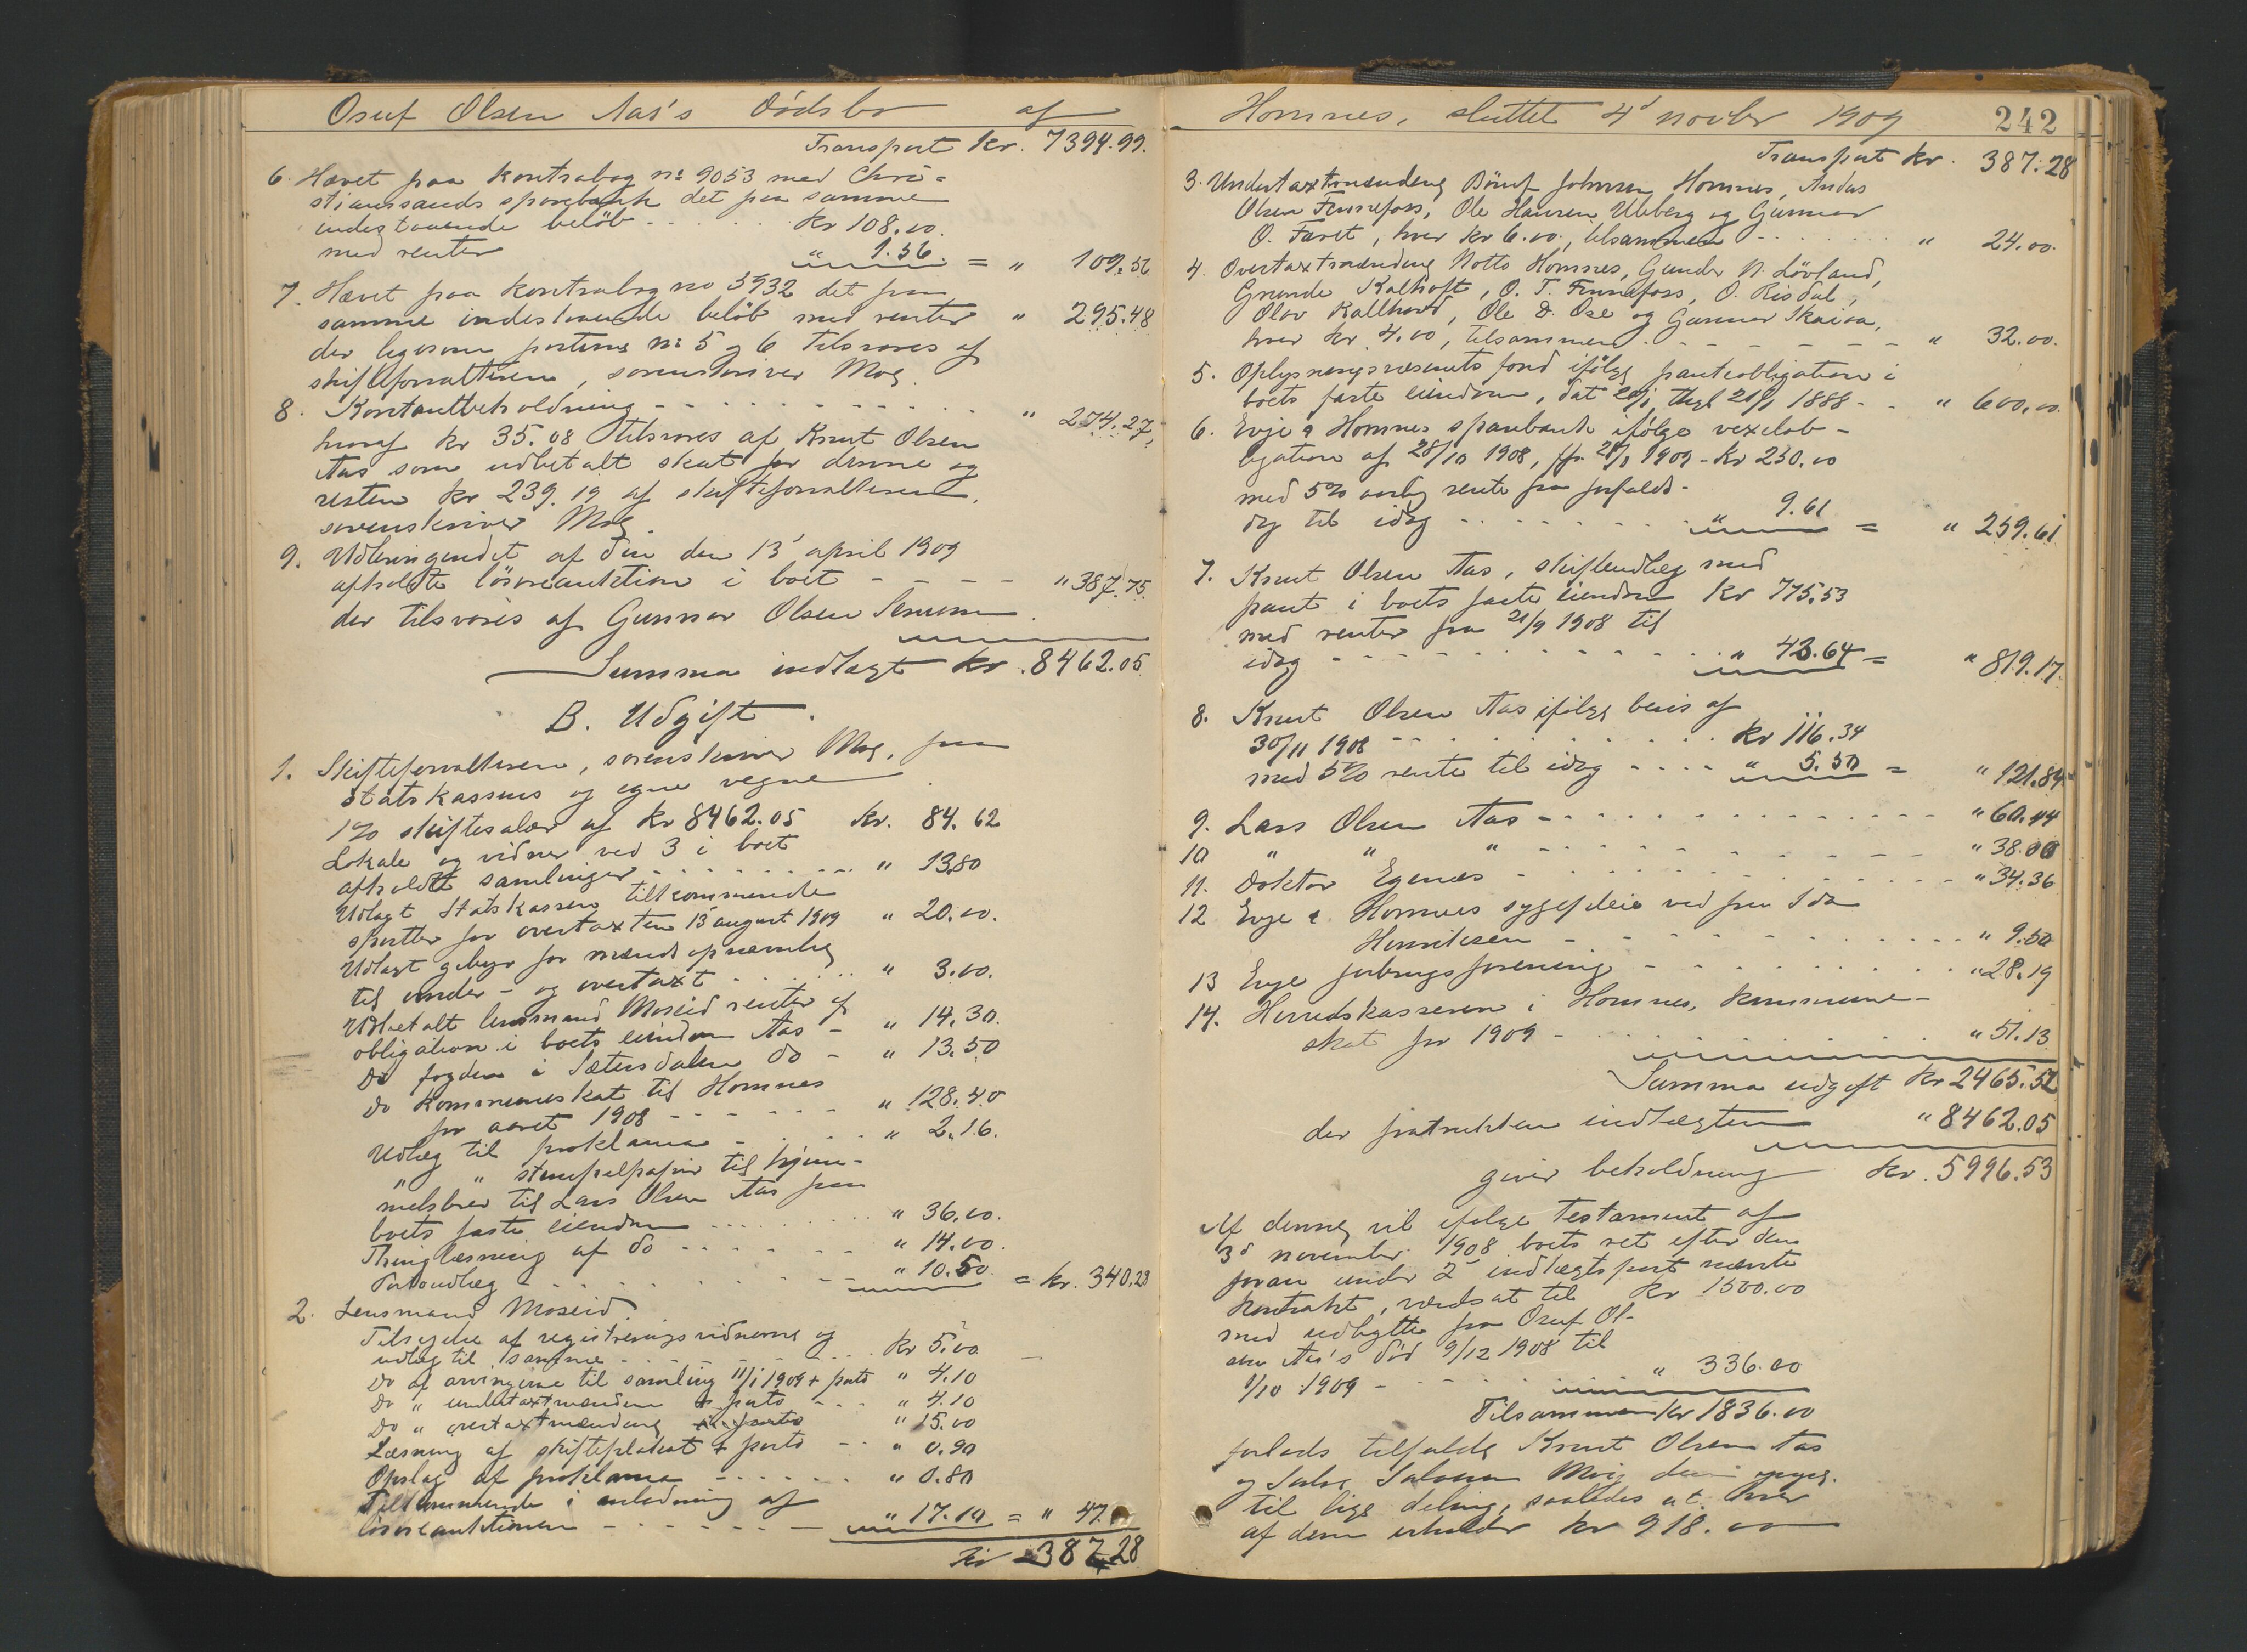 Osuf Olsen Aas's dödsbo af
Transport kr. 7394.99.
6. Hævet paa kontrabog no 9053 med Chri=
stianssands sparebank det paa samme
indestaaende beløb - - - - kr 108.00.
med renter " 1.56. = " 109.56
7. Hævet paa kontrabog no 3932 det paa
samme indestaaende beløb med renter " 295.48
der ligesom posterne no 5 og 6 tilsvares af
skifteforvalteren, sorenskriver Moe.
8. Kontantbeholdning - - - - - - " 274.27,
hvoraf kr 35.08 tilsvares af Knut Olsen
Aas som udbetalt skat for denne og
resten kr 239.19 af skifteforvalteren,
sorenskriver Moe.
9. Udbringendet af den den 13' april 1909
afholdte lösöreauktion i boet - - - - " 387.75.
der tilsvares af Gunnar Olsen Senum.
Summa indtægt kr. 8462.05
B. Udgift.
1. Skifteforvalteren, sorenskriver Moe, paa
statskassens og egne vegne
1% skiftesalær af kr 8462.05 kr. 84.62
Lokale og vidner ved 3 i boet
afholdte samlinger - - - - " 13.80
Udlagt Statskassen tilkommende
sportler for overtaxten 13 august 1909 " 20.00.
Udlagt gebyr for mænds opnævnelse
til under- og overtaxt - - - - " 3.00.
Udbetalt lensmand Moseid renter af
obligation i boets eiendom Aas - " 14.30.
Do fogden i Sætersdalen do - " 13.50
Do kommuneskat til Hornnes
for aaret 1908 - - - - - " 128.40
Udlæg til proklama - - - - " 2.16.
" " stempelpapir til hjem-
melsbrev til Lars Olsen Aas paa
boets faste eiendom - - - - " 36.00.
Thinglæsning af do - - - - " 14.00.
Portoudlæg - - - - - - " 10.50. = kr. 340.28
2. Lensmand Moseid.
Tilsigelse af registreringsvidnerne og
udlæg til samme - - - - kr 5.00
Do af arvingerne til samling 11/1 1909 + porto " 4.10
Do " undertaxtmændene + porto - - - " 4.10
Do " overtaxtmændene + porto " 15.00
Læsning af skifteplakat + porto - - " 0.90
Opslag af proklama - - - - - " 0.80
Tilkommende i anledning af
lösöreauktionen - - - - - - " 17.10 = " 47.
Kr 387.28
Hornnes, sluttet 4' novbr 1909
242
Transport kr. 387.28
3. Undertaxtmændene Böruf Johnsen Hornnes, Andas
Olsen Fennefoss, Ole Hansen Uleberg og Gunnar
O. Faret, hver kr 6.00, tilsammen - - - - " 24.00.
4. Overtaxtmændene Notto Hornnes, Gunder N. Lövland,
Grunde Kalhoft, O. T. Fennefoss, O. Risdal,
Olav Kallhovd, Ole D. Ose og Gunnar Skaiaa,
hver kr 4.00, tilsammen - - - - - - " 32.00.
5. Oplysningsvæsenets fond ifölge panteobligation i
boets faste eiendom, dat 20/1, thgl 21/1 1888 - - " 600.00.
6. Evje & Hornnes sparebank ifölge vexelob-
ligation af 28/10 1908, ffr 28/1 1909 - Kr 250.00
med 5% aarlig rente fra forfalds-
dag til idag - - - - - - " 9.61 = " 259.61
7. Knut Olsen Aas, skifteudlæg med
pant i boets faste eiendom kr 775.53
med renter fra 21/9 1908 til
idag - - - - - - - - " 43.64 = " 819.17.
8. Knut Olsen Aas ifölge bevis af
30/11 1908 - - - - - - - - kr 116.34
med 5% rente til idag - - - - " 5.50 = " 121.84
9. Lars Olsen Aas - - - - - - - - " 60.44
10 " " " - - - - - - - - " 38.00
11. Doktor Egenæs - - - - - - - " 34.36
12 Evje & Hornnes sygepleie ved fru Ida
Henriksen - - - - - - - - " 9.50
13 Evje forbrugsforening - - - - - - " 28.19
14. Herredskassereren i Hornnes, kommune-
skat for 1909 - - - - - - - " 51.13
Summa udgift kr 2465.52
der fratrukken indtægten " 8462.05
giver beholdning kr. 5996.53
Af denne vil ifølge testament af
3d november 1908 boets ret efter den
foran under 2' indtægtspost nævnte
kontrakt, værdsat til kr 1500.00
med udbytte fra Osuf Ol-
sen Aas's död 9/12 1908 til
1/10 1909 - - - - - - " 336.00
Tilsammen kr 1836.00
forlods tilfalde Knut Olsen Aas
og Salve Salvesen Moi
til lige deling, saaledes at hver
af dem erholder kr 918.00